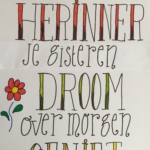 HERINNER
je gisteren
DROOM
over morgen
GENIET